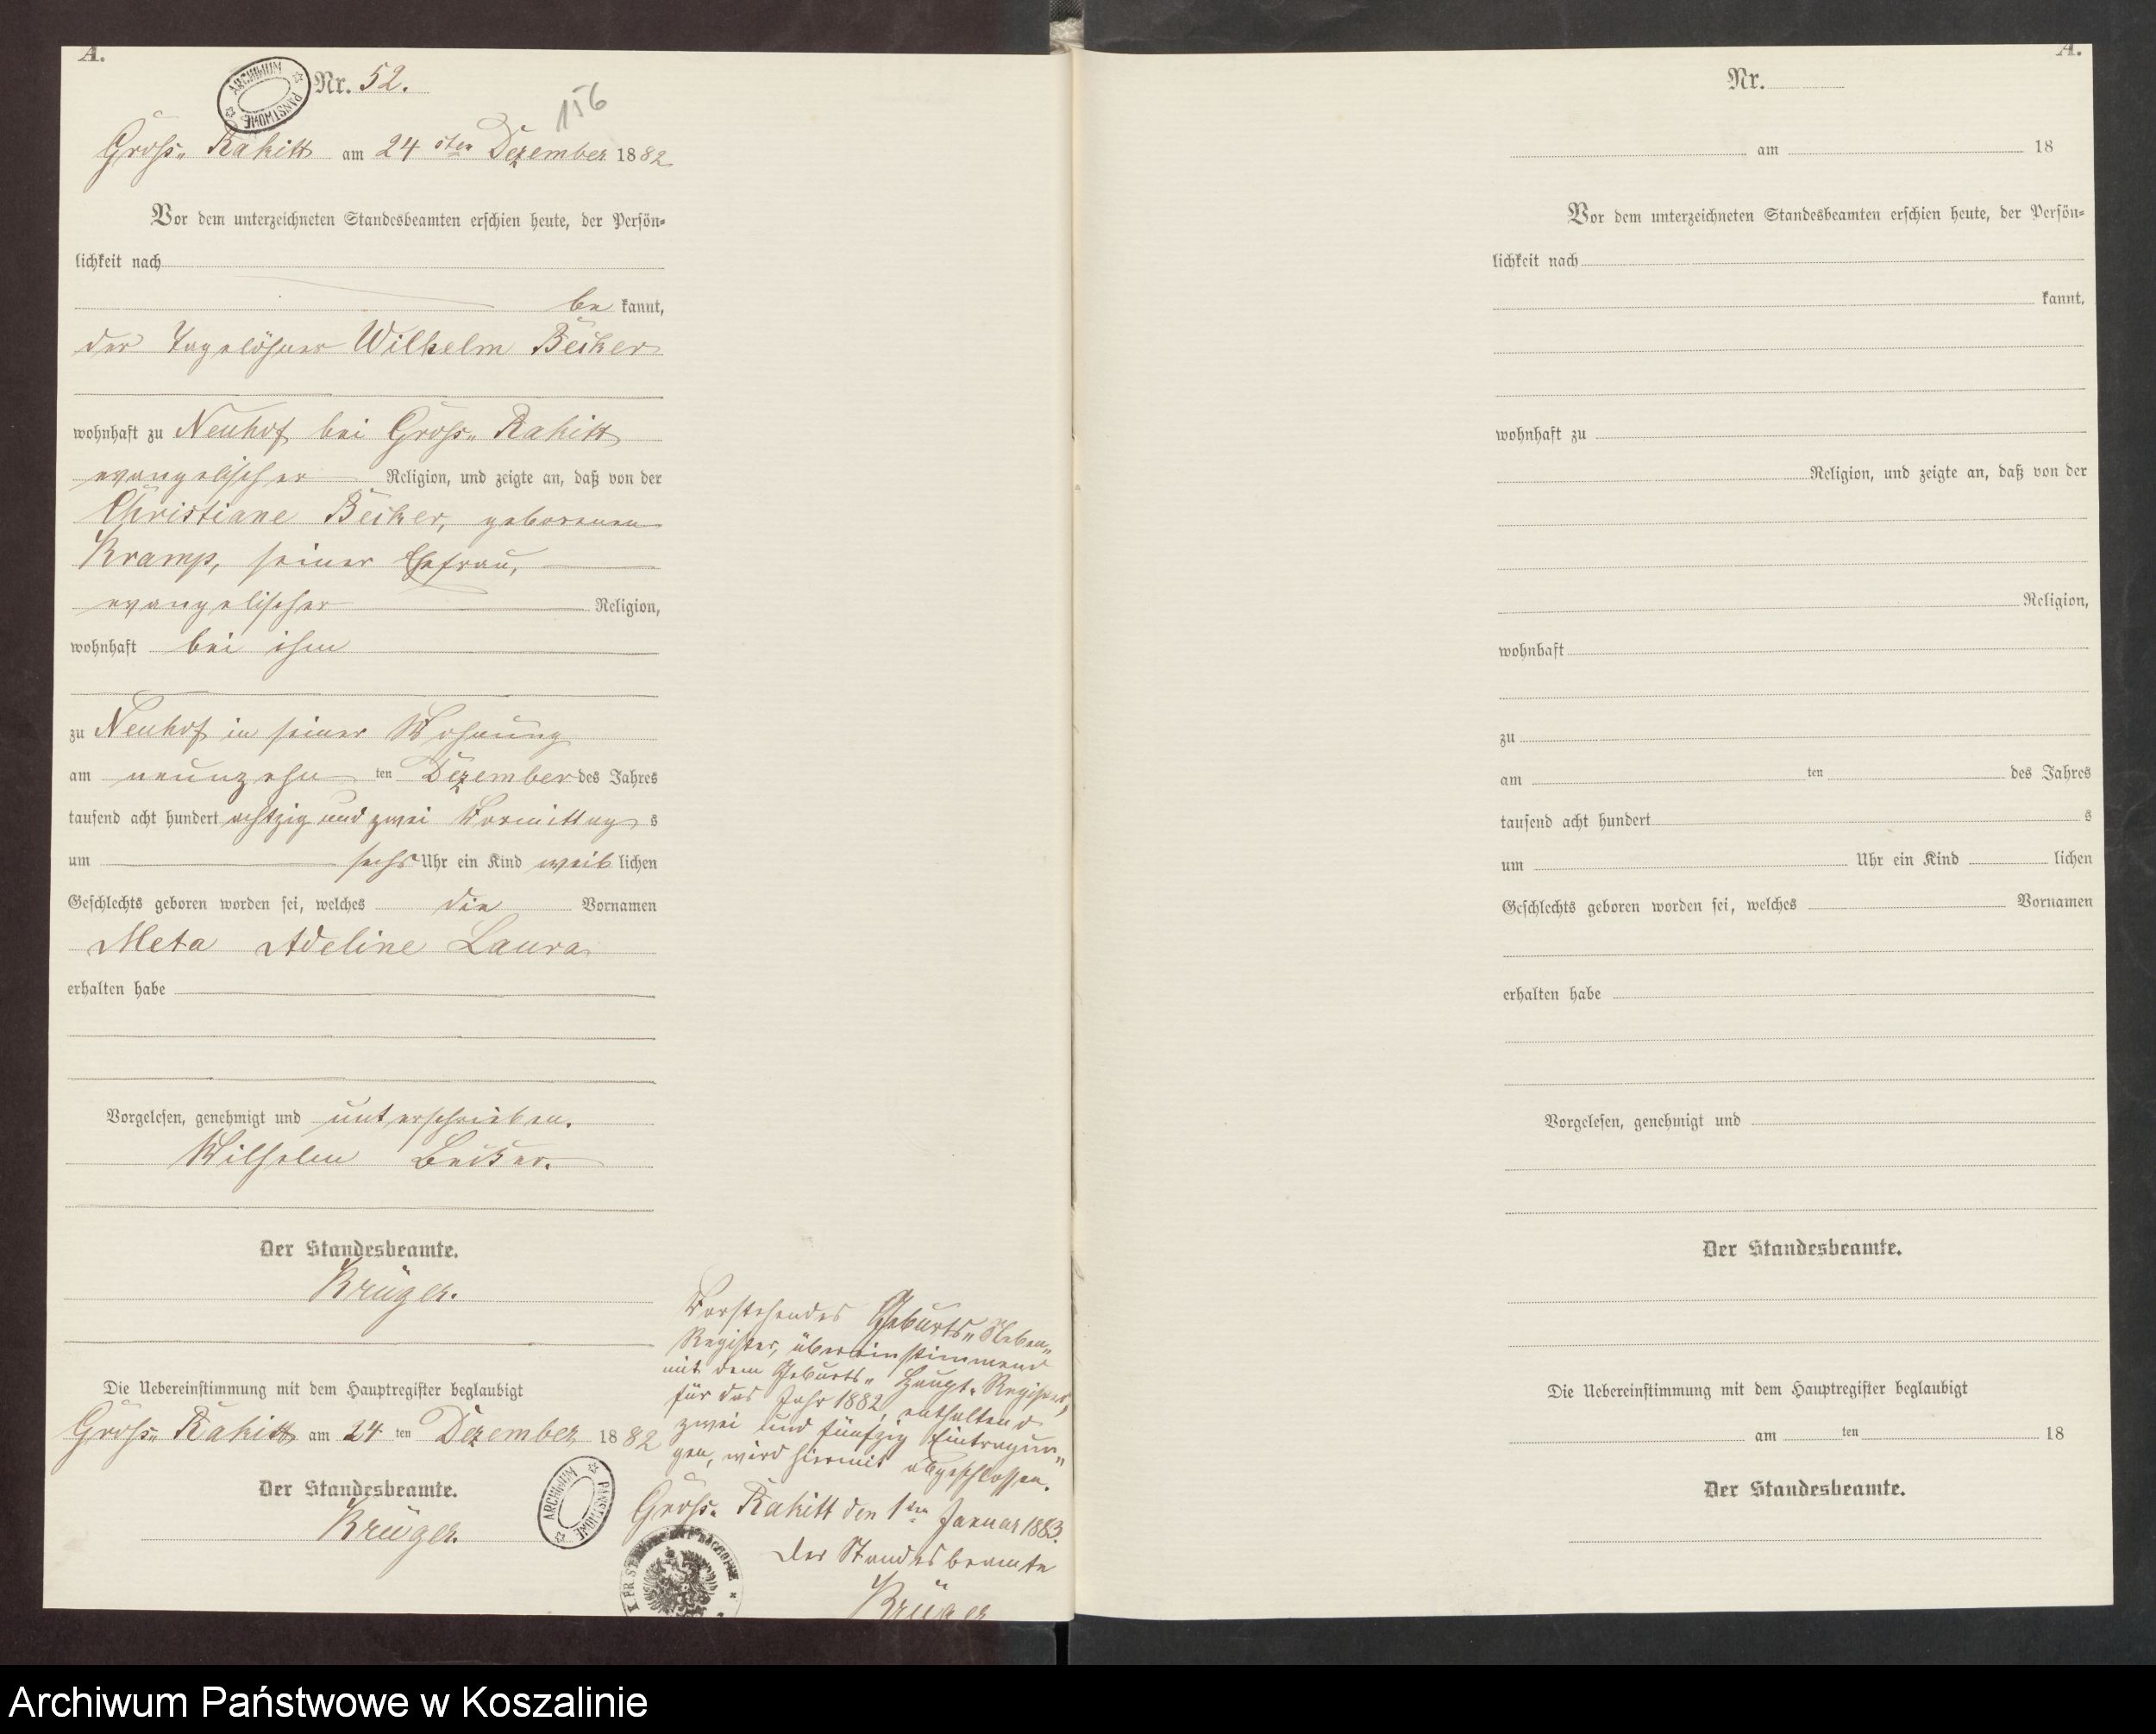 A.
ARCHIWUM PAŃSTWOWE
Nr. 52.
156
Gross„ Rakitt am 24 sten Dezember 1882
Vor dem unterzeichneten Standesbeamten erschien heute, der Persön=
lichkeit nach
be kannt,
der Tagelöhner Wilhelm Becker
wohnhaft zu Neuhof bei Gross„ Rakitt
evangelischer Religion, und zeigte an, daß von der
Christiane Becker, geborenen
Kramp, seiner Ehefrau,
evangelischer Religion,
wohnhaft bei ihm
zu Neuhof in seiner Wohnung
am neunzehn ten Dezember des Jahres
tausend acht hundert achtzig und zwei Vormittag s
um sechs Uhr ein Kind weib lichen
Geschlechts geboren worden sei, welches die Vornamen
Meta Adeline Laura
erhalten habe
Vorgelesen, genehmigt und unterschrieben.
Wilhelm Becker.
Der Standesbeamte.
Krüger.
Die Uebereinstimmung mit dem Hauptregister beglaubigt
Gross„ Rakitt am 24 ten Dezember 1882
Der Standesbeamte.
Krüger.
ARCHIWUM PAŃSTWOWE
Vorstehendes Geburts„ Neben„
Register, übereinstimmend
mit dem Geburts„ Haupt„ Register,
für das Jahr 1882, enthaltend
zwei und fünfzig Eintragun„
gen, wird hiermit abgeschlossen.
Gross„ Rakitt den 1ten Januar 1883.
Der Standesbeamte
Krüger
A.
Nr.
am 18
Vor dem unterzeichneten Standesbeamten erschien heute, der Persön=
lichkeit nach
kannt,
wohnhaft zu
Religion, und zeigte an, daß von der
Religion,
wohnhaft
zu
am ten des Jahres
tausend acht hundert s
um Uhr ein Kind lichen
Geschlechts geboren worden sei, welches Vornamen
erhalten habe
Vorgelesen, genehmigt und
Der Standesbeamte.
Die Uebereinstimmung mit dem Hauptregister beglaubigt
am ten 18
Der Standesbeamte.
Archiwum Państwowe w Koszalinie